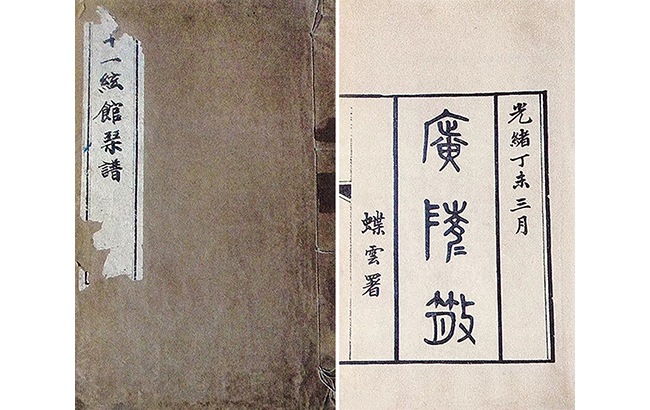 十一絃館琹譜
光緒丁未三月
廣陵散
蝶雲署